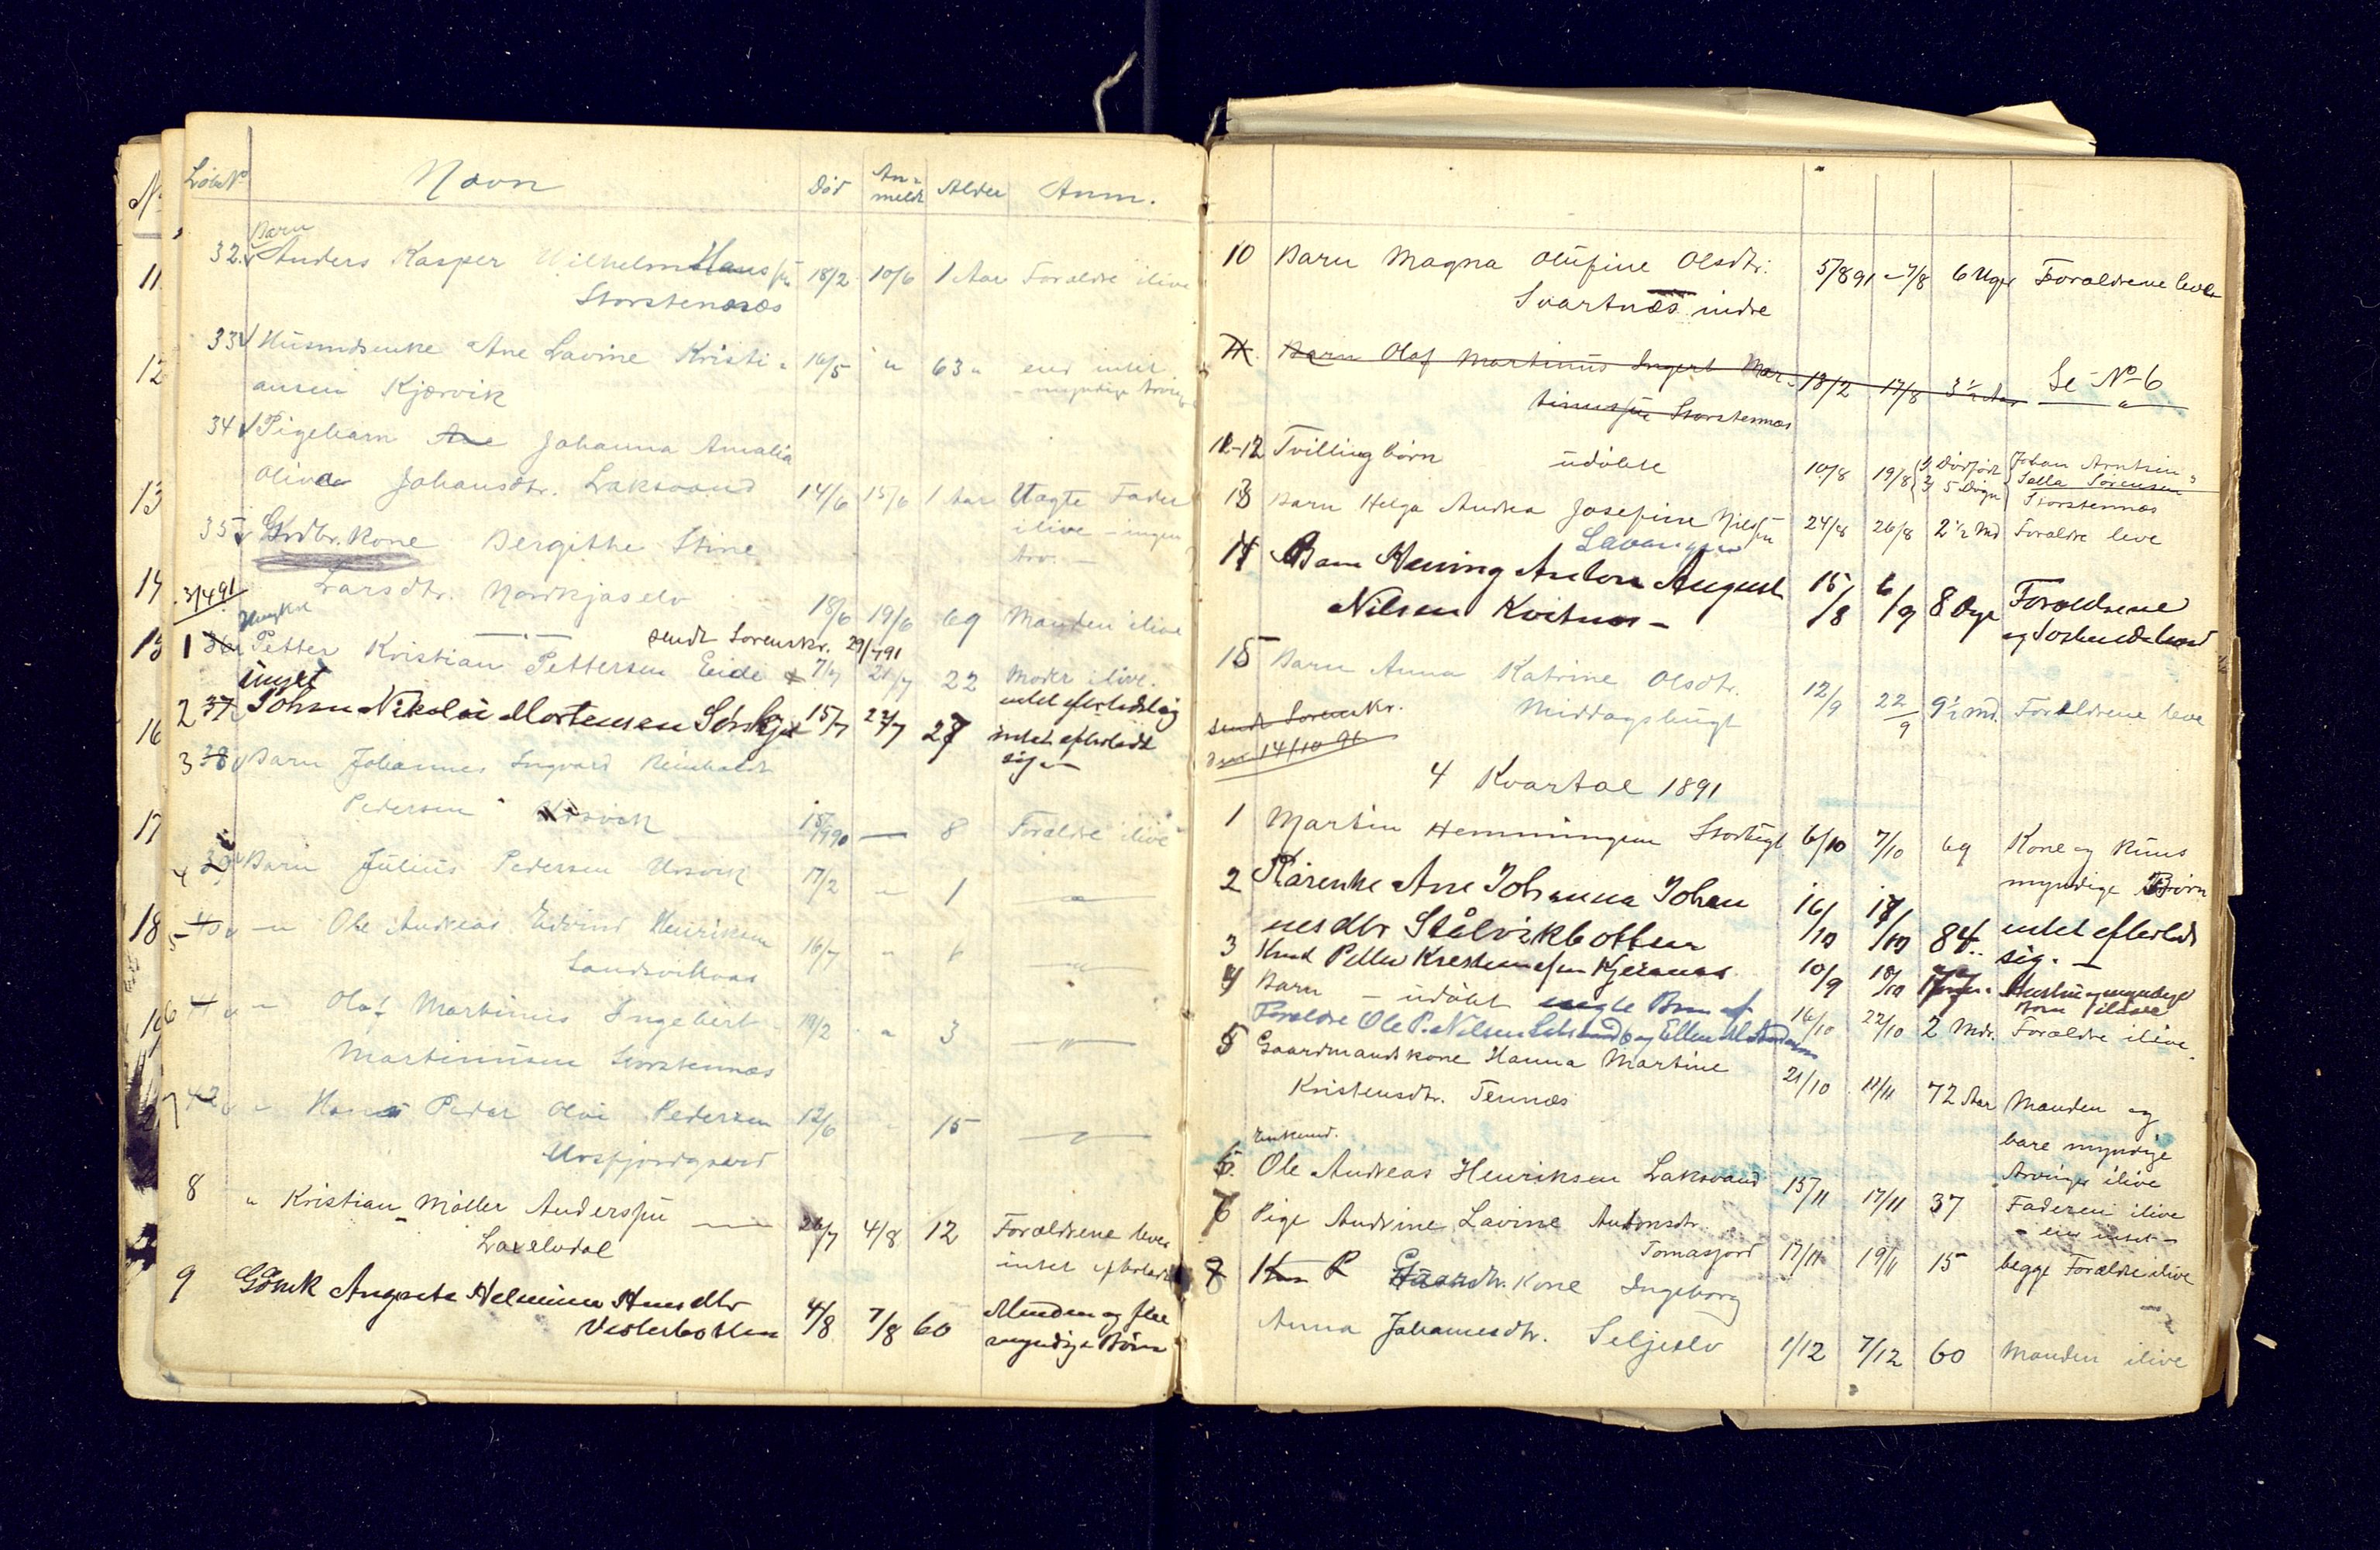 LøbeNo Navn Død An-meldt Alder Anm.
Barn
32. Anders Kasper Wilhelm Hanssen 18/2 10/6 1 Aar Forældre ilive
Storstennæs
33 Husmdsenke Ane Lavine Kristi- 16/5 " 63 " end intet
ansen Kjærvik - myndige Arvinger
34 Pigebarn Ane Johanna Amalia
Oliva Johansdtr. Laksvand 14/6 15/6 1 Aar Uægte Fader
ilive - ingen
Arv. -
35 Grdbr. Kone Bergithe Stine
Larsdtr. Nordkjoselv 18/6 19/6 69 Manden ilive
3/4 91
sendt Sorenskr. 29/7 91
Ungkl
1 36 Petter Kristian Pettersen Eide 7/7 21/7 22 Moder ilive.
intet efterladt sig
ungkl
2 37 Johan Nikolai Mortensen Sørkjos 15/7 22/7 27 intet efterladt
sig —
3 38 Barn Johannes Ingvard Reinholdt
Pedersen Ursvik 15/7 90 — 8 Forældre ilive
4 39 Barn Julius Pedersen Ursvik 17/2 " 1 — " —
5 40 — " Ole Andreas Edvind Henriksen 16/7 " 6 — " —
Sandviknæs
6 41 — " Olaf Martinus Ingebert 18/2 " 3 — " —
Martinussen Storstennæs
7 42 " Hans Peder Olai Pedersen 12/6 " 15 — " —
Ursfjordgaard
8 " Kristian Møller Anderssen — 26/7 4/8 12 Forældrene lever
Laxelvdal intet efterladt
9 Gbrk Augusta Helmine Hansdtr 4/8 7/8 60 Manden og flere
Vesterbotten myndige Børn
10 Barn Magna Olufine Olsdtr. 5/8 91 7/8 6 Uger Forældrene lever
Svartnæs indre
11 Barn Olaf Martinus Ingert Mar- 18/2 17/8 3 1/2 Aar Se No 6
tinussen Storstennæs "
11-12 Tvillingbørn udøbte 10/8 19/8 1 Dødfødt Johan Arntsen
2 5 Døgn Salla Sørensen
Storstennæs
13 Barn Helga Andrea Josefine Nilssen 24/8 26/8 2 1/2 Md Forældre leve
Lavangen
14 Barn Henning Anton August 15/8 6/9 8 Dage Forældrene
Nilsen Kvitnes -
15 Barn Anna Katrine Olsdtr. 12/9 22/9 9 1/2 Md. Forældrene leve
Middagsbugt
sendt Sorenskr.
den 14/10 91
4 Kvartal 1891
1 Martin Hemmingsen Stordugt 6/10 7/10 69 Kone og kuns
myndige Børn
2 Kårenke Ane Johanna Johan 16/10 18/10 84. intet efterladt
nesdtr Stålvikbotten sig. —
3 Knud Petter Kristiansen Kjerenes 10/9 18/10 Hustru og myndige
Børn ilive
4 Barn — udøbt uægte Barn af 16/10 22/10 2 Mdr. Forældre ilive.
Forældre Ole P. Nilsen og Ellen
5 Gaardmandskone Hanna Martine
Kristensdtr. Tennæs 21/10 11/11 72 Aar Manden og
bare myndige
Arvinger ilive
Enkemd.
6. Ole Andreas Henriksen Laksvand 15/11 17/11 37 Faderen ilive
- eier intet -
7 Pige Andrine Lavine Antonsdtr.
Tomasjord 17/11 19/11 15 begge Forældre ilive
8 Gaardbr. Kone Ingeborg
Anna Johannesdtr. Seljeelv 1/12 7/12 60 Manden ilive